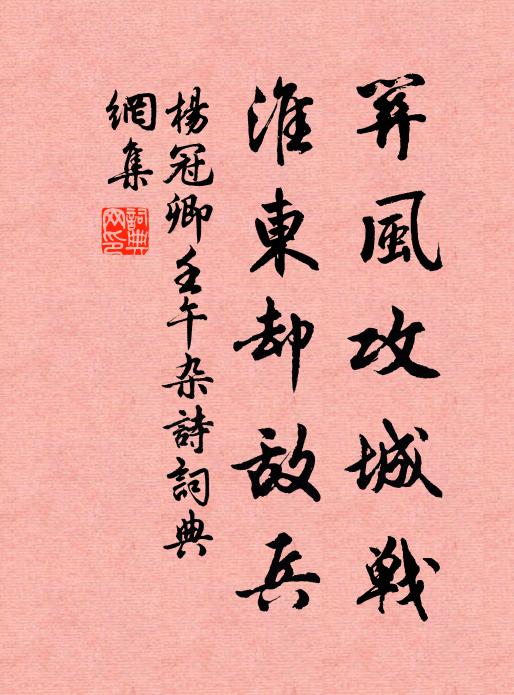 羿風攻城戰
淮東却敵兵
楊冠卿壬午杂詩詞典
網集
詞典網印